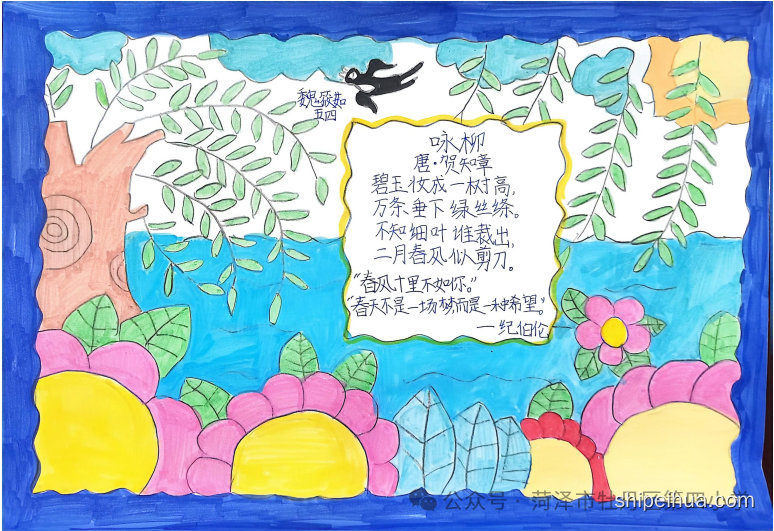 魏
五四
咏柳
唐·贺知章
碧玉妆成一树高,
万条垂下绿丝绦。
不知细叶谁裁出,
二月春风似剪刀。
“春风十里不如你。”
“春天不是一场梦而是一种希望。”
—纪伯伦
公众号·菏泽市牡丹区第
shipcihua.com